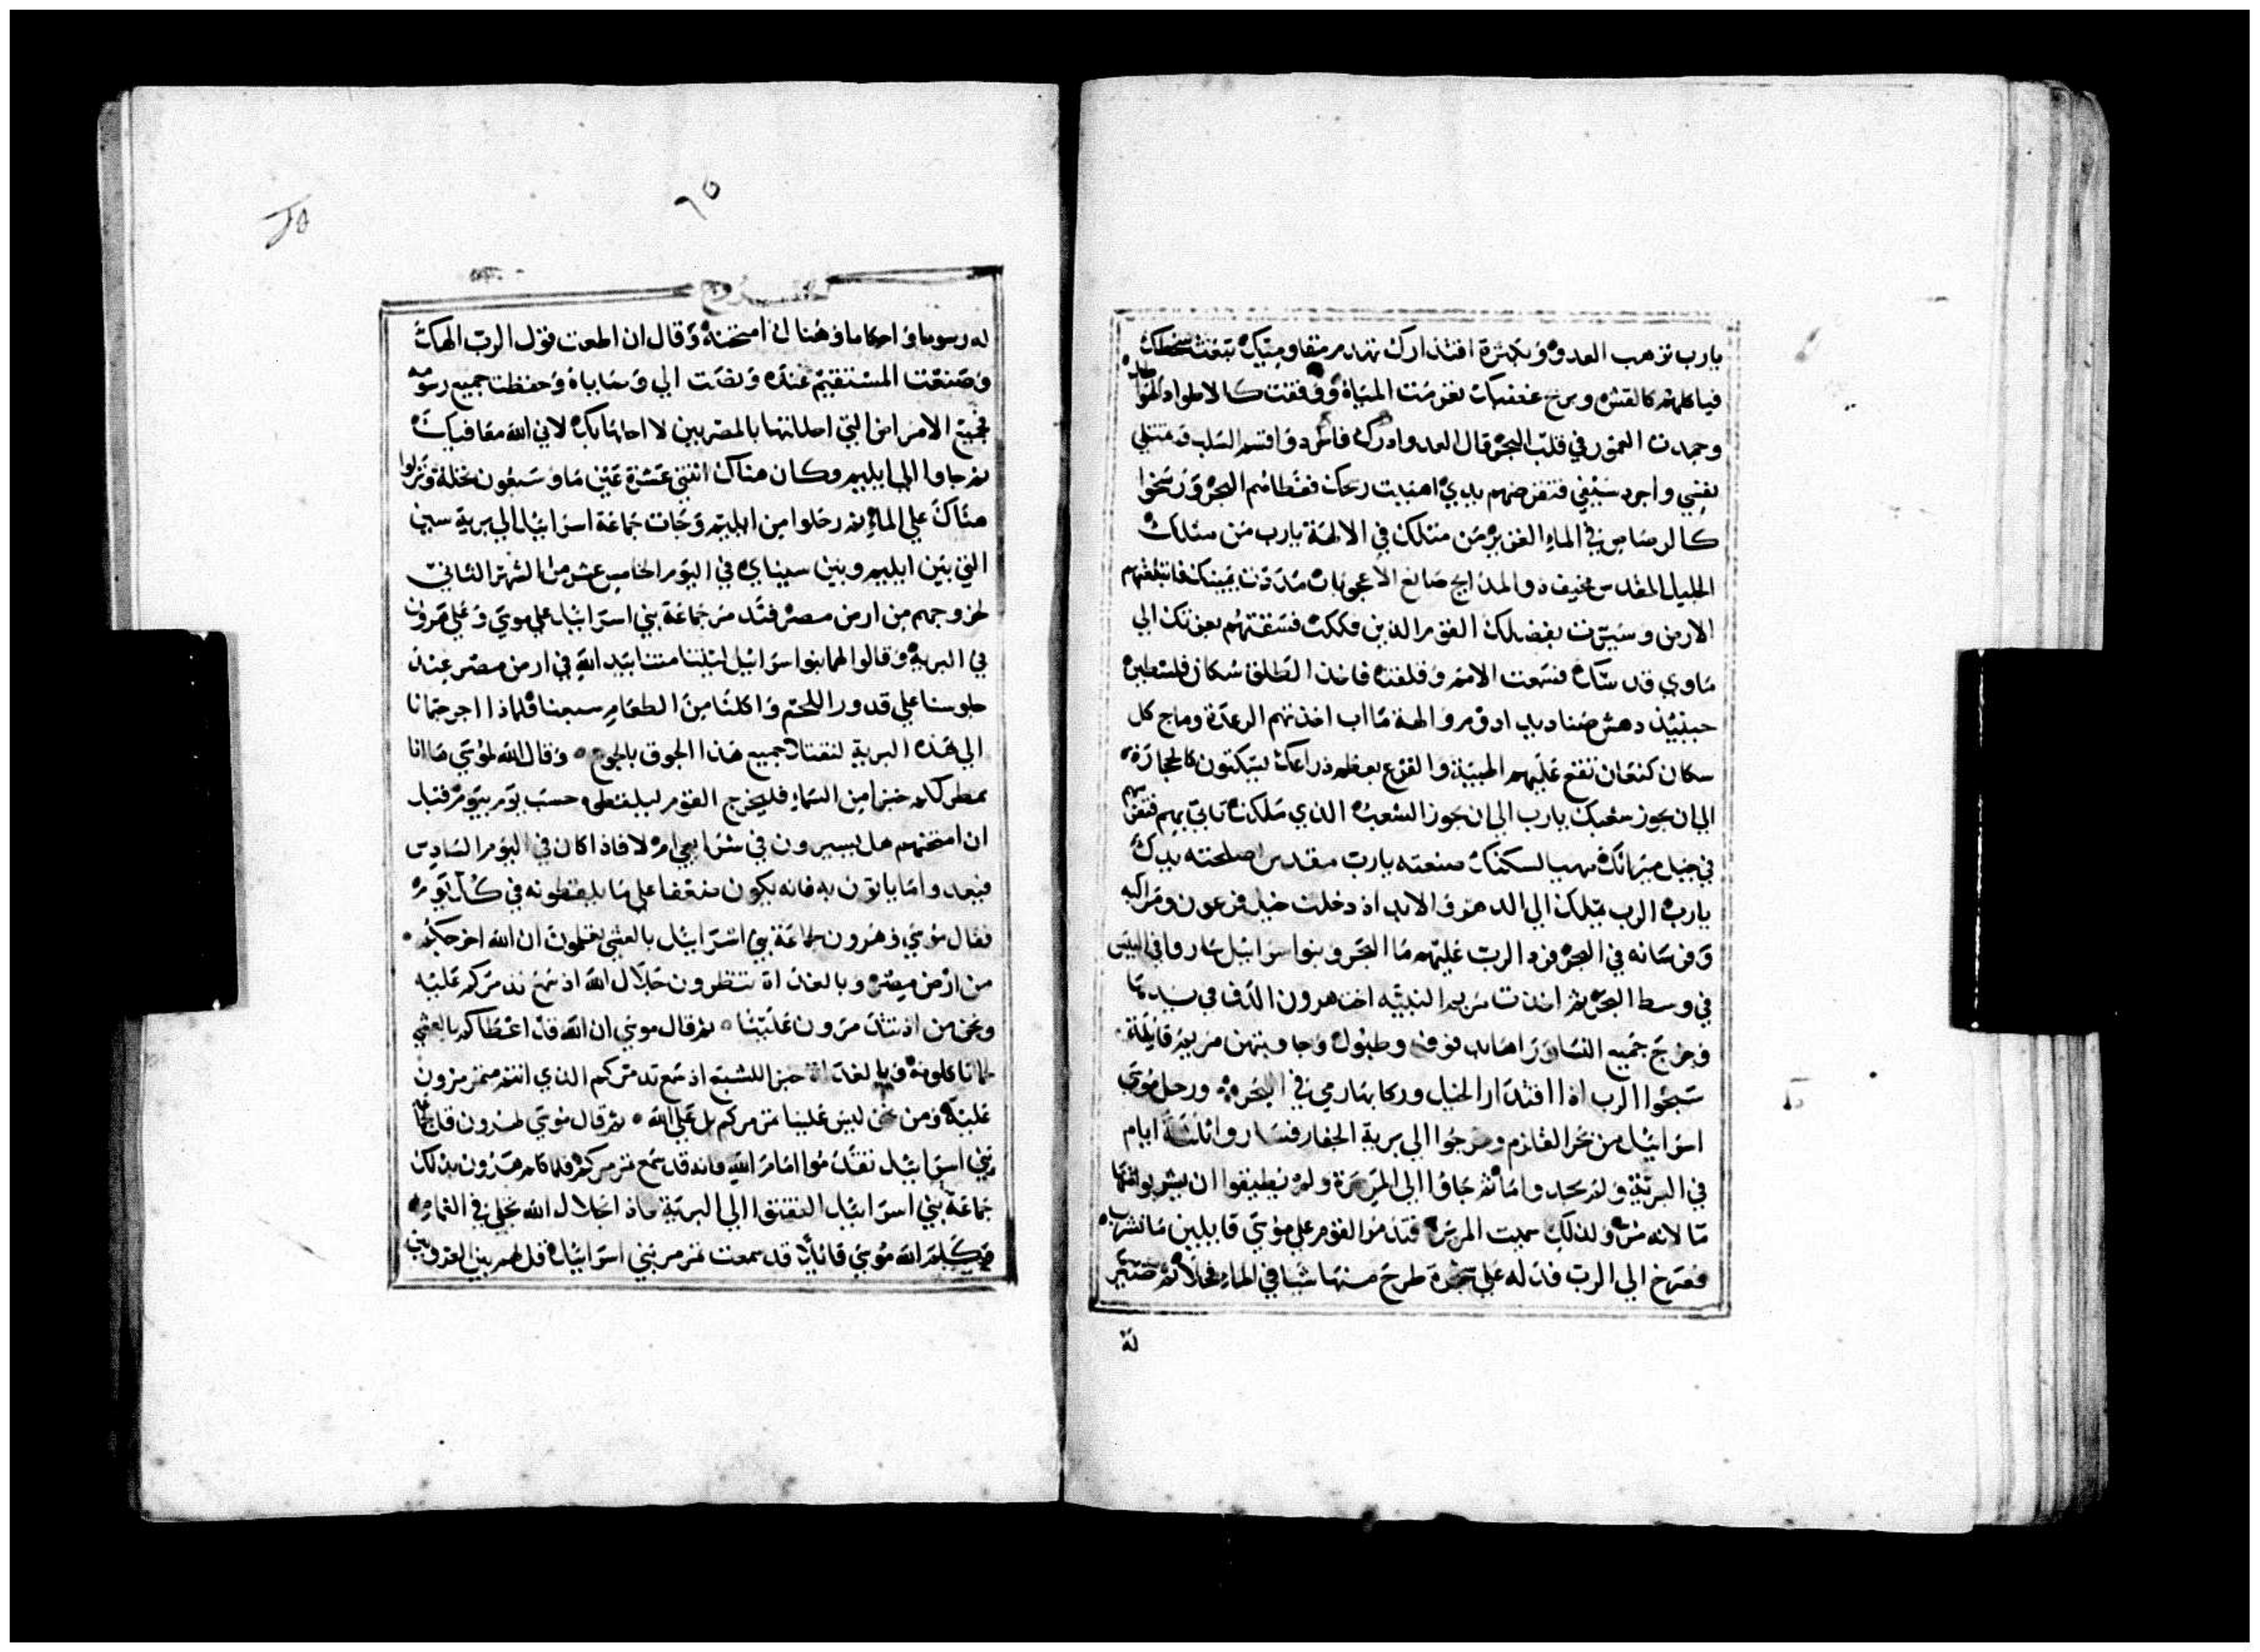 يارب ترهب العدو وبكثرة اقتدارك تهدم مقاوميك تبعث سخطك
فياكلهم كالقش وبريح غضبك تعرمت المياه ووقفت كالاطواد
وجمدت الغمور في قلب البحر قال العدو ادرك فاطرد واقسم السلب فتمتلي
نفسي واجرد سيفي فتقرضهم يدي اهببت ريحك فغطاهم البحر ورسخوا
كالرصاص في الما الغزير من مثلك في الالهة يارب من مثلك
الجليل المقدس مخيف ذو المدايح صانع الاعجوبات مددت يمينك فابتلعتهم
الارض وسيرت بفضلك القوم الذين فككت فسقتهم بعزتك الي
ماوي قدسك فسمعت الامم وقلقت فاخذ الطلق سكان فلسطين
حينيذ دهش صناديد ادوم والهة مااب اخذتهم الرعدة وماج كل
سكان كنعان تقع عليهم الهيبة والفزع بعظم ذراعك يسكتون كالحجارة
الي ان يجوز شعبك يارب الي ان يجوز الشعب الذي ملكت تاتي بهم فتغرسهم
في جبل ميراثك مهيا لسكنك صنعته يارب مقدس اصلحته يدك
يارب الرب يملك الي الدهر والابد اذ دخلت خيل فرعون ومراكبه
وفرسانه في البحر فرد الرب عليهم ما البحر وبنوا اسرائيل ساروا في اليبس
في وسط البحر ثم اخذت مريم النبيه اخت هرون الدف في يدها
وخرج جميع النسا وراها بدفوف وطبول وجاوبتهن مريم قايلة
سبحوا الرب اذ اقتدار الخيل وركابها رمي في البحر ورحل موسي
اسرائيل من بحر القلزم وخرجوا الي برية الجفار فساروا ثلثة ايام
في البرية ولم يجدوا ما ثم جاوا الي المرمرة ولم يطيقوا ان يشربوا منها
ما لانه مر ولذلك سميت المرمرة فتذمر القوم علي موسي قايلين ما نشرب
فصرخ الي الرب فدله علي شجرة طرح منها شيا في الما فحلا ثم صير
له
٦٥
الخروج
له رسوما واحكاما وهناك امتحنه وقال ان اطعت قول الرب الهك
وصنعت المستقيم عنده ونصت الي وصاياه وحفظت جميع رسومه
فجميع الامراض التي احللتها بالمصريين لا احلها بك لاني الله معافيك
ثم جاوا الي ايليم وكان هناك اثنتي عشرة عين ما وسبعون نخلة ونزلوا
هناك علي الما ثم رحلوا من ايليم وجات جماعة اسرائيل الي برية سين
التي بين ايليم وبين سيناي في اليوم الخامس عشر من الشهر الثاني
لخروجهم من ارض مصر فتذمر جماعة بني اسرائيل علي موسي وعلي هرون
في البرية وقالوا لهما بنوا اسرائيل ليتنا متنا بيد الله في ارض مصر عند
جلوسنا علي قدور اللحم واكلنا من الطعام سبعنا فلماذا اخرجتمانا
الي هذه البرية لتقتلا جميع هذا الجوق بالجوع وقال الله لموسي ها انا
ممطر لكم خبزا من السما فليخرج القوم ليلقطوه حسب يوم بيوم قبل
ان امتحنهم هل يسيرون في شرايعي ام لا فاذا كان في اليوم السادس
فيعدوا ما ياتون به فانه يكون مضعفا علي ما يلقطونه في كل يوم
فقال موسي وهرون لجماعة بني اسرائيل بالعشي يعلمون ان الله اخرجكم
من ارض مصر وبالغداة تنظرون جلال الله اذ سمع تذمركم عليه
ونحن من اذ تتذمرون علينا ثم قال موسي ان الله قد اعطاكم بالعشي
لحما تاكلونه وبالغداة خبز اللشبع اذ سمع تذمركم الذي انتم متمرمرون
عليه ومن نحن ليس علينا تمرمركم بل علي الله ثم قال موسي لهرون قل لجماعة
بني اسرائيل تقدموا امام الله فانه قد سمع تمرمركم فلما كلم هرون بذلك
جماعة بني اسرائيل التفتوا الي البرية فاذا جلال الله تجلي في الغمام
فكلم الله موسي قائلا قد سمعت تمرمر بني اسرائيل قل لهم بين الغروبين